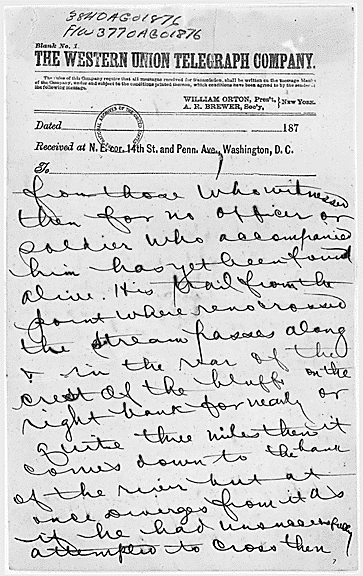 3840AGO1876
F/W 3770AGO1876
Blank No. 1.
THE WESTERN UNION TELEGRAPH COMPANY.
The rules of this Company require that all messages received for transmission, shall be written on the Message Blanks
of the Company, under and subject to the conditions printed thereon, which conditions have been agreed to by the sender of
the following message.
WILLIAM ORTON, Pres't,
A. R. BREWER, Sec'y, } NEW YORK.
Dated 187
Received at N. E. cor. 14th St. and Penn. Ave., Washington, D. C.
To
from those who witnessed
them for no officer or
soldier who accompanied
him has yet been found
alive. His trail from the
point where reno crossed
the stream passes along
& in the rear of the
crest of the bluffs on the
right bank for nearly or
quite three miles then it
comes down to the bank
of the river but at
once diverges from it as
if he had unsuccessfully
attempted to cross then